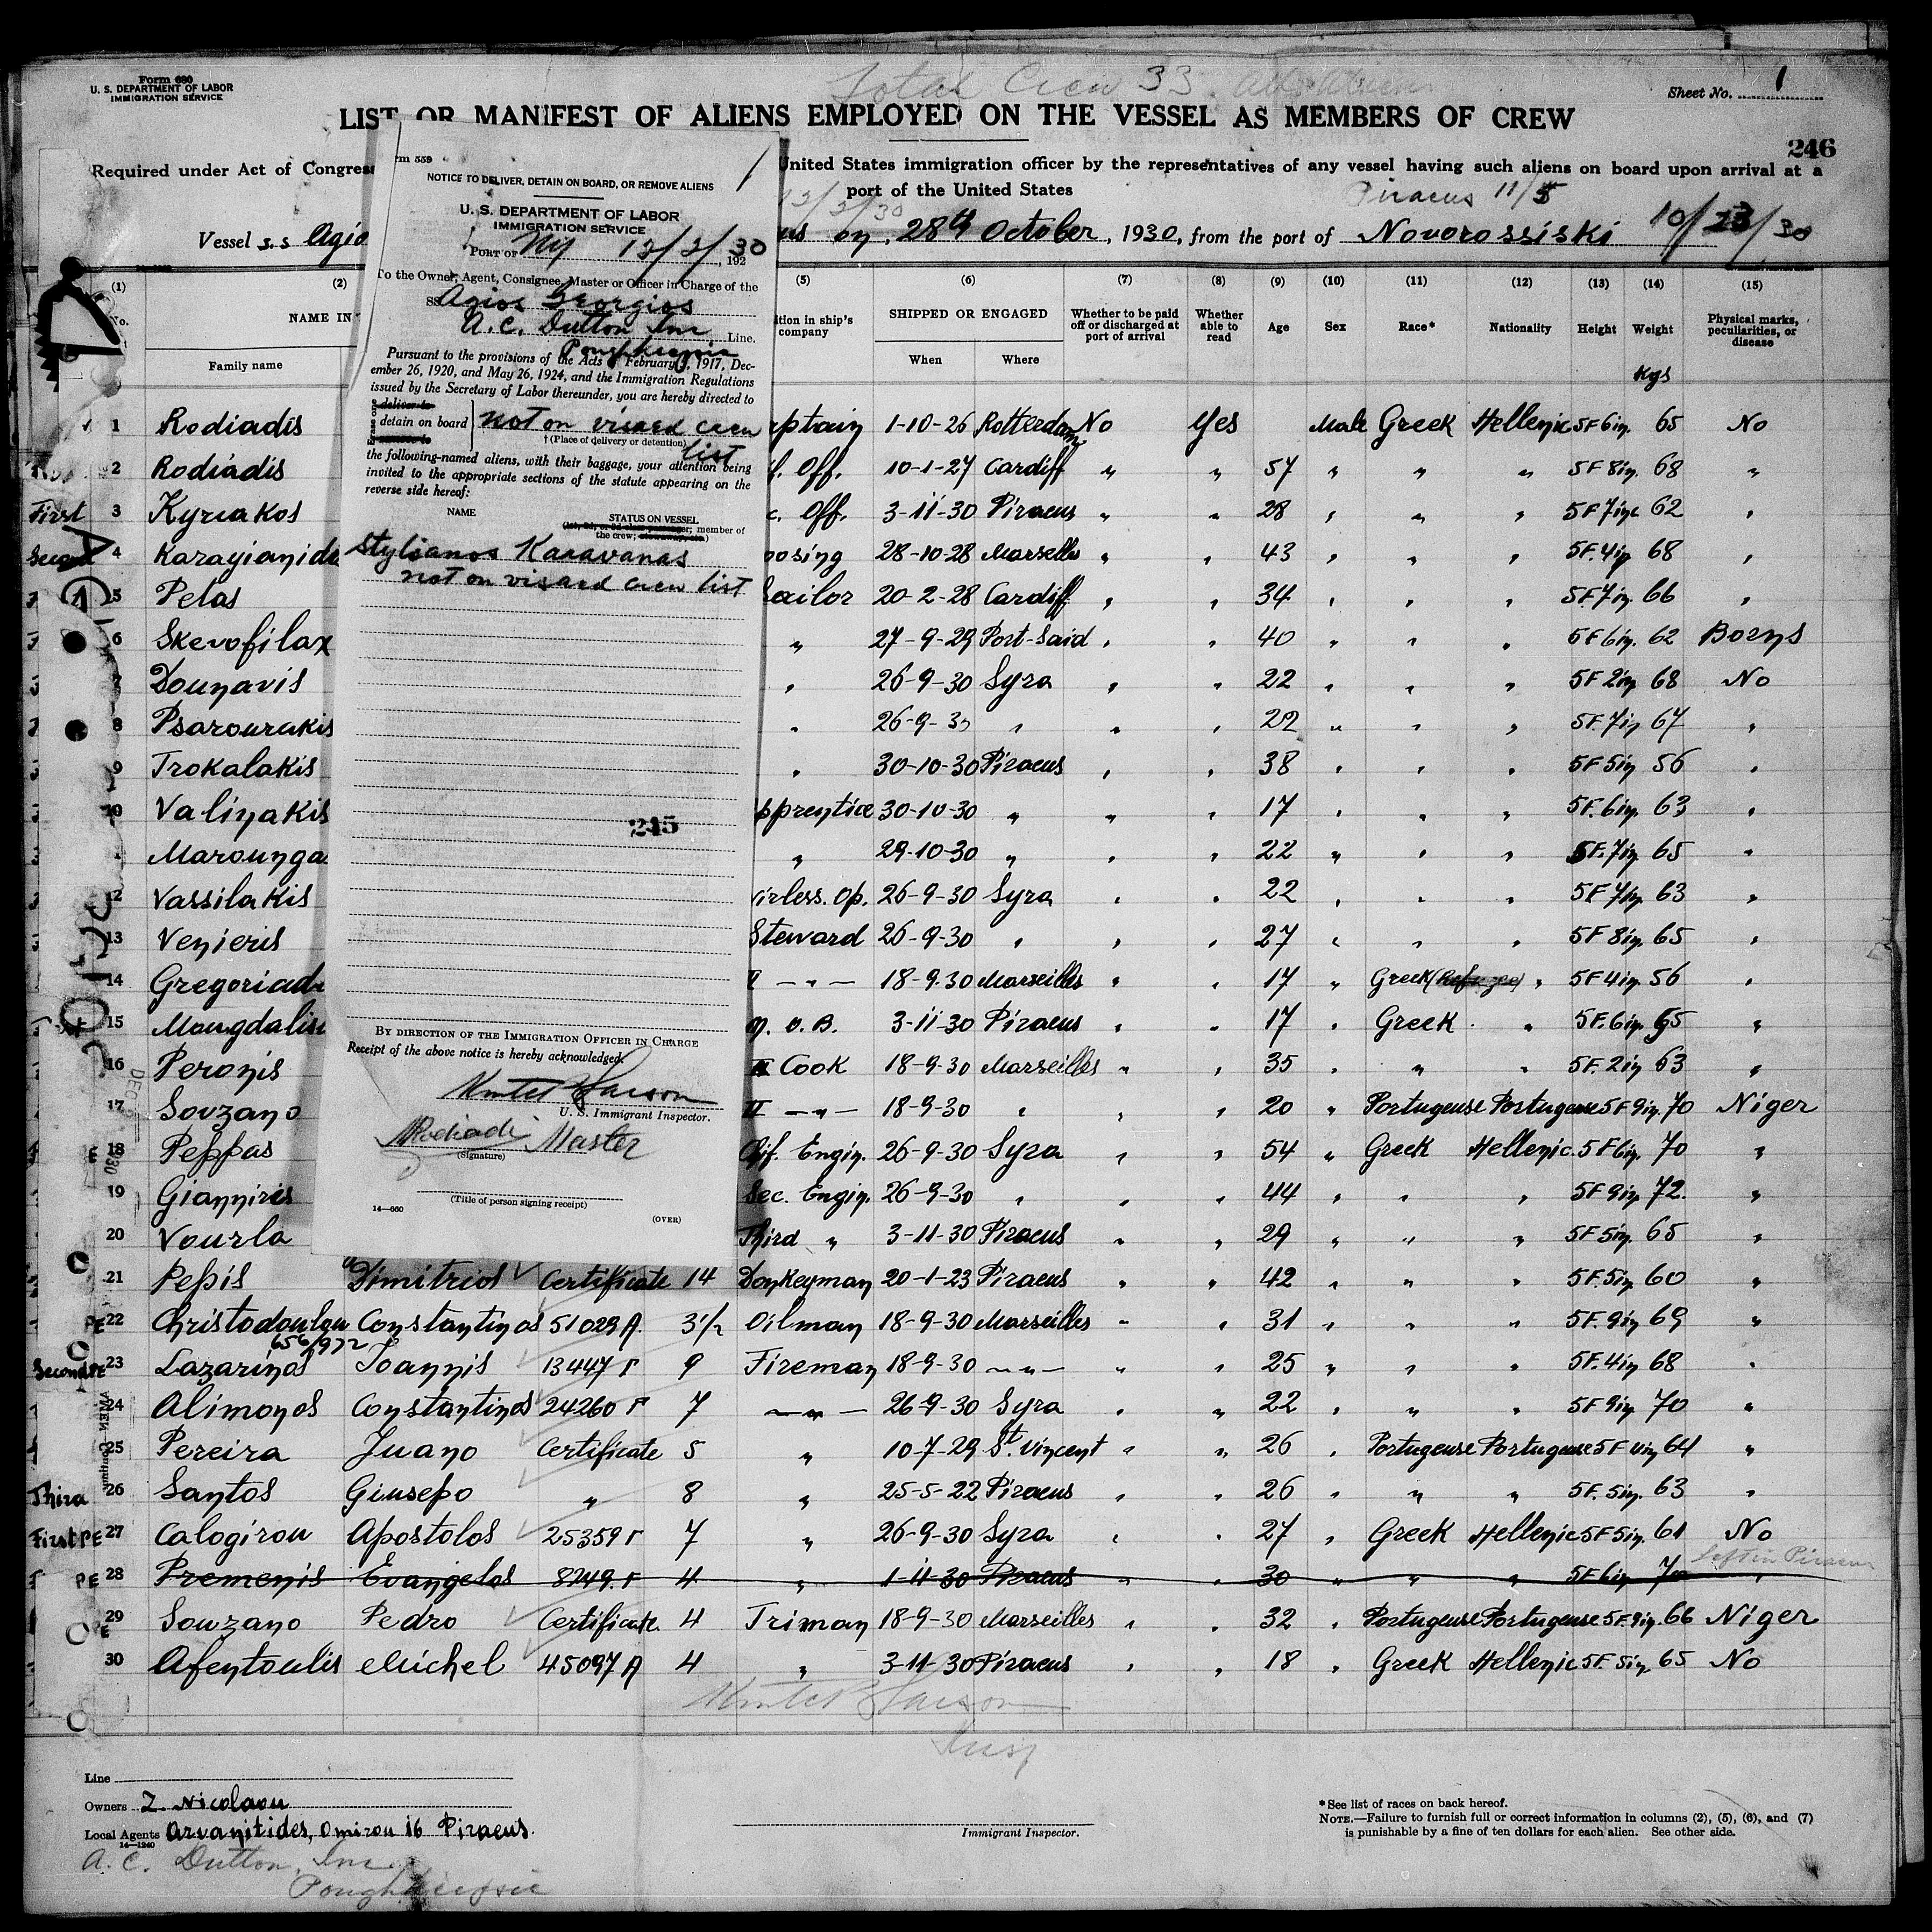 Form 680
U. S. DEPARTMENT OF LABOR
IMMIGRATION SERVICE
Total Crew 33
Sheet No. 1
LIST OR MANIFEST OF ALIENS EMPLOYED ON THE VESSEL AS MEMBERS OF CREW
246
Required under Act of Congress
United States immigration officer by the representatives of any vessel having such aliens on board upon arrival at a
port of the United States
Piraeus 11/5
Vessel s.s Agio
28th October, 1930, from the port of Novorossiski 10/23/30
NOTICE TO DELIVER, DETAIN ON BOARD, OR REMOVE ALIENS
U. S. DEPARTMENT OF LABOR
IMMIGRATION SERVICE
PORT OF NY 12/2/30, 192
To the Owner, Agent, Consignee, Master or Officer in Charge of the
SS Agios Georgios
A.C. Dutton Inc Line.
Poughkeepsie
Pursuant to the provisions of the Acts of February 5, 1917, Dec-
ember 26, 1920, and May 26, 1924, and the Immigration Regulations
issued by the Secretary of Labor thereunder, you are hereby directed to
deliver to
detain on board not on visaed crew
remove to
† (Place of delivery or detention)
list
the following-named aliens, with their baggage, your attention being
invited to the appropriate sections of the statute appearing on the
reverse side hereof:
NAME STATUS ON VESSEL
(1st, 2d, or 3d class passenger; member of
the crew; stowaway, etc.)
Stylianos Karavanas
not on visaed crew list
245
BY DIRECTION OF THE IMMIGRATION OFFICER IN CHARGE
Receipt of the above notice is hereby acknowledged.
U. S. Immigrant Inspector.
Rodiadi Master
(Signature)
(Title of person signing receipt)
14—660
(OVER)
(1) (2) (5) (6) (7) (8) (9) (10) (11) (12) (13) (14) (15)
NAME IN
Family name
ition in ship's company
SHIPPED OR ENGAGED
When Where
Whether to be paid off or discharged at port of arrival
Whether able to read
Age Sex Race* Nationality Height Weight
Physical marks, peculiarities, or disease
Kgs
1 Rodiadis ptain 1-10-26 Rotterdam No Yes Male Greek Hellenic 5F 6in. 65 No
2 Rodiadis f. Off. 10-1-27 Cardiff " " 57 " " " 5F 8in. 68 "
First 3 Kyriakos c. Off. 3-11-30 Piraeus " " 28 " " " 5F 7in 62 "
Second 4 Karayianid osing 28-10-28 Marselles " " 43 " " " 5F. 4in 68 "
5 Pelas Sailor 20-2-28 Cardiff " " 34 " " " 5F. 7in. 66 "
6 Skevofilax " 27-9-29 Port-Said " " 40 " " " 5F 6in. 62 Borns
7 Dounavis " 26-9-30 Syra " " 22 " " " 5F 2in 68 No
8 Psarourakis " 26-9-30 " " " 22 " " " 5F. 7in 67 "
9 Trokalakis " 30-10-30 Piraeus " " 38 " " " 5F 5in 56 "
10 Valinakis pprentice 30-10-30 " " " 17 " " " 5F. 6in. 63 "
Marounga " 29-10-30 " " " 22 " " " 5F. 7in 65 "
12 Vassilakis irless. Op. 26-9-30 Syra " " 22 " " " 5F 7in. 63 "
13 Venieris Steward 26-9-30 " " " 27 " " " 5F 8in. 65 "
14 Gregoriad — " — 18-9-30 Marseilles " " 17 " Greek (Refugee) " 5F 4in. 56 "
15 Mougdalis M. O. B. 3-11-30 Piraeus " " 17 " Greek " 5F. 6in. 65 "
16 Peronis Cook 18-9-30 Marseilles " " 35 " " " 5F. 2in 63 "
17 Souzano II — " — 18-9-30 " " " 20 " Portugeuse Portugeuse 5F 9in. 70 Niger
18 Peppas Chif. Engin. 26-9-30 Syra " " 54 " Greek Hellenic. 5F 6in. 70 "
19 Gianniris Sec. Engin. 26-9-30 " " " 44 " " " 5F 9in 72. "
20 Vourla Third " 3-11-30 Piraeus " " 29 " " " 5F 5in. 65 "
21 Pepis Dimitrios Certificate 14 Donkeyman 20-1-23 Piraeus " " 42 " " " 5F. 5in 60 "
PE 22 Christodoulou Constantinos 51029 A. 3 1/2 Oilman 18-9-30 Marseilles " " 31 " " " 5F. 9in 69 "
656/972
Second PE 23 Lazarinos Ioannis 13447 Γ 9 Fireman 18-9-30 — " — " " 25 " " " 5F. 4in 68 "
24 Alimonos Constantinos 24260 Γ 7 — " — 26-9-30 Syra " " 22 " " " 5F 9in 70 "
25 Pereira Juano Certificate 5 " 10-7-29 St. Vincent " " 26 " Portugeuse Portugeuse 5F 4in 64 "
Third 26 Santos Giusepo " 8 " 25-5-22 Piraeus " " 26 " " " 5F. 5in. 63 "
First PE 27 Calogirou Apostolos 25359 Γ 7 " 26-9-30 Syra " " 27 " Greek Hellenic 5F 5in. 61 No
Left in Piraeus
PE 28 Premenis Evangelos 8249. Γ 4 " 1-11-30 Piraeus " " 30 " " " 5F 6in 70 "
PE 29 Souzano Pedro Certificate. 4 Triman 18-9-30 Marseilles " " 32 " Portugeuse Portugeuse 5F. 9in. 66 Niger
30 Afentoulis Michel 45097 A 4 " 3-11-30 Piraeus " " 18 " Greek Hellenic 5F. 5in 65 No
Insp
Line
Owners Z. Nicolaou
Local Agents Arvanitides, Omirou 16 Piraeus.
14—1240
A. C. Dutton, Inc
Poughkeepsie
Immigrant Inspector.
* See list of races on back hereof.
NOTE.—Failure to furnish full or correct information in columns (2), (5), (6), and (7)
is punishable by a fine of ten dollars for each alien. See other side.